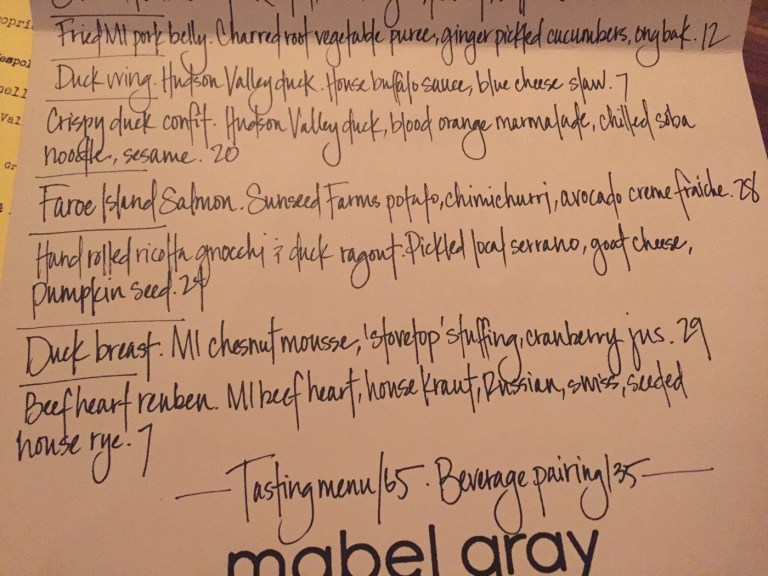 Fried MI pork belly. Charred root vegetable puree, ginger pickled cucumbers, ong bak. 12
Duck wing. Hudson Valley duck. House buffalo sauce, blue cheese slaw. 7
Crispy duck confit. Hudson Valley duck, blood orange marmalade, chilled soba
noodle, sesame. 20
Faroe Island Salmon. Sunseed Farms potato, chimichurri, avocado creme fraiche. 28
Hand rolled ricotta gnocchi & duck ragout. Pickled local serrano, goat cheese,
pumpkin seed. 24
Duck breast. MI chesnut mousse, 'stovetop' stuffing, cranberry jus. 29
Beef heart reuben. MI beef heart, house kraut, Russian, swiss, seeded
house rye. 7
— Tasting menu/65 . Beverage pairing/35 —
mabel gray